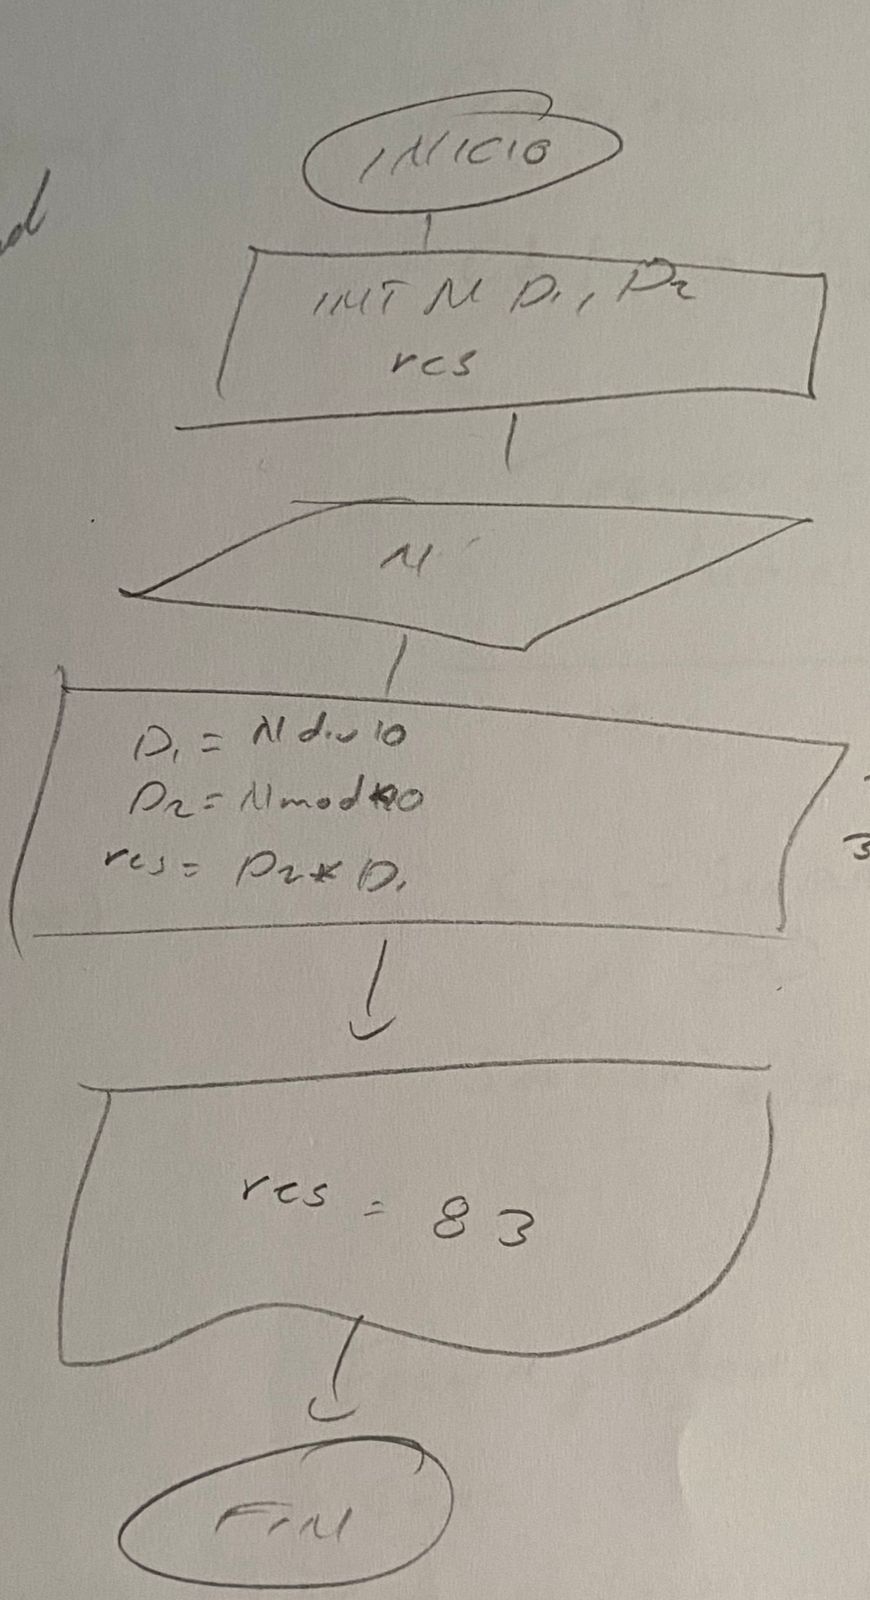 INICIO
INT N D1, D2
res
N
D1 = N div 10
D2 = N mod 10
res = D2 * D1
3
res = 83
FIN